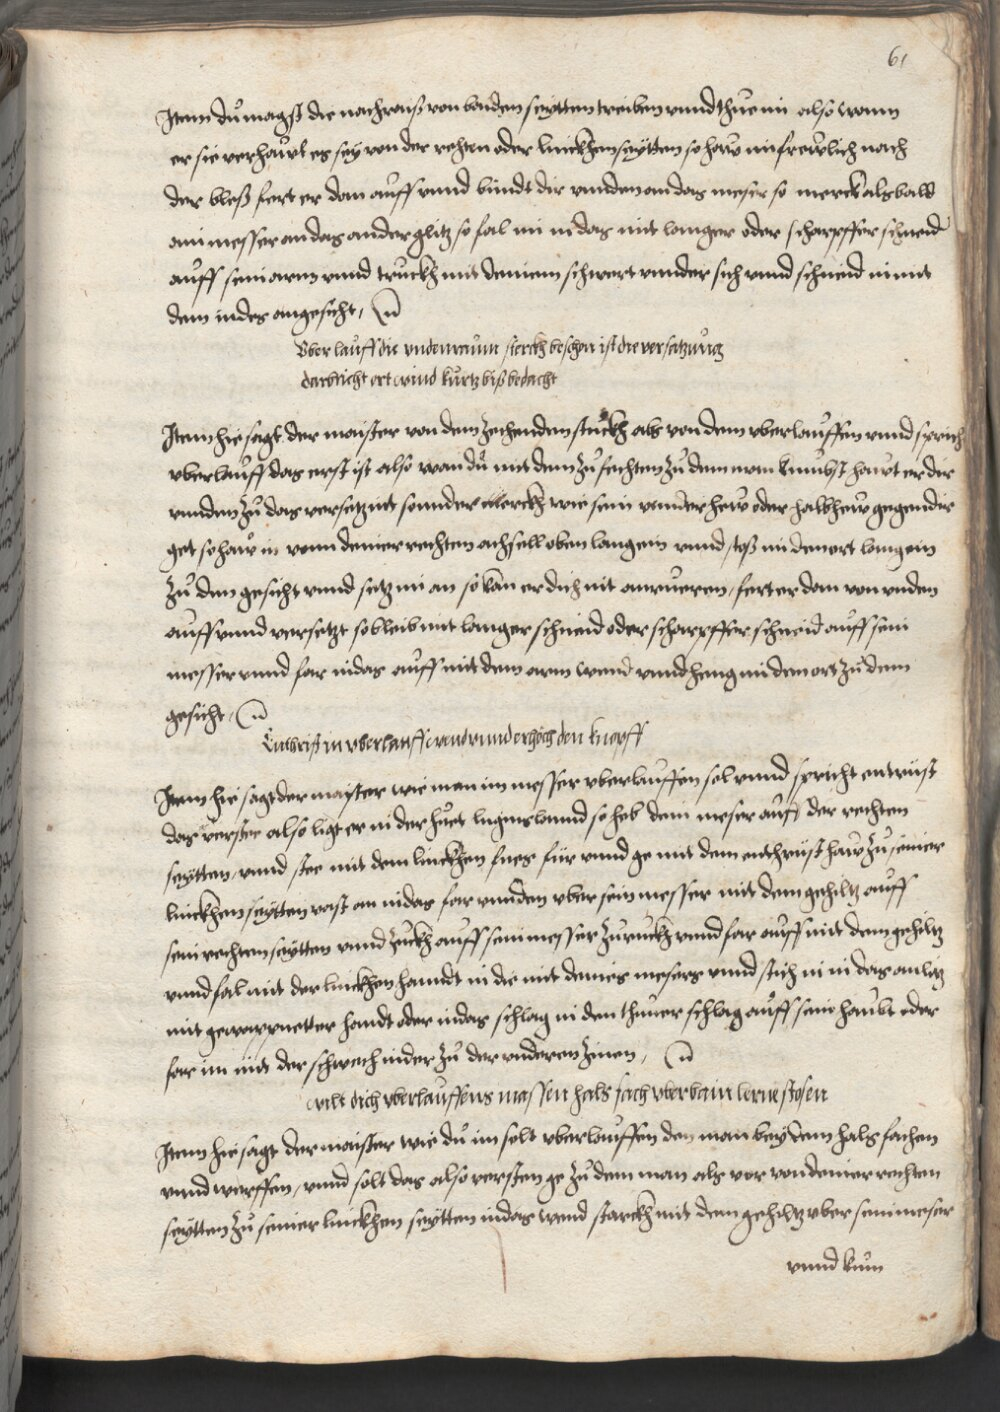 61
Item du magst die nachrais von baiden seytten treiben vnnd thue im also wann
er sie verhawt es sey von der rehten oder linckhen seytten so haw im frewlich nach
der bleß fert er dan auff vnnd bindt dir vnnden an das meser so merck alsbald
ain messer an das ander glitz so fal im indas mit langer oder scharpffer schneid
auff sein arm vnnd truckh mit deinem schwert vnnder sich vnnd schneid in mit
dem indes angesicht
Vber lauff die vnden raum sterckh beschon ist die versatzung
das bricht ort wind kurtz biß bedacht
Item hie sagt der maister von dem zechenden stuckh als von dem vberlauffen vnnd sprich
vberlauff das erst ist also wan du mit dem zufechten zu dem man kumbst hawt er dir
vnnden zu das versetz nit sonnder merckh wie sein vnnderhew oder halbhew gegen dir
get so haw in vonn deiner rechten achsell oben langein vnnd stoß im den ort langein
zu dem gesicht vnnd setz im an so kan er dich nit anrueren fert er dan von vnden
auff vnnd versetzt so bleib mit langer schneid oder scharpffer schneid auff sein
messer vnnd far indas auff mit dem arm wend vnnd heng im den ort zu dem
gesicht
Entrist in vberlauff wend vnnd erhöch den knopff
Item hie sagt der mayster wie man im messer vberlauffen sol vnnd spricht entrüst
das verstee also ligt er in der huet luginslannd so heb dein meser auff der rechten
seytten vnnd stee mit dem linckhen fues für vnnd ge mit dem entrüsthaw zu seiner
linckhen seytten vast an indas far vnnden vber sein messer mit dem gehiltz auff
sein rechten seytten vnnd zuckh auff sein messer zuruckh vnnd far auff mit dem gehiltz
vnnd fal mit der linckhen hanndt in die mit deines mesers vnnd stich in in das anlitz
mit gewappnetter handt oder indas schlag in den thuner schlag auff sein haubt oder
far im mit der schwech inder zu der anderen zinen
wilt dich vberlauffens massen hals fach vber bain lerne stosen
Item hie sagt der maister wie du im solt vberlauffen den man bey dem hals fachen
vnnd werffen vnnd solt das also versten ge zu dem man als vor von deiner rechten
seytten zu seiner linckhen seytten indas wend starckh mit dem gehiltz vber sein meser
vnnd kum